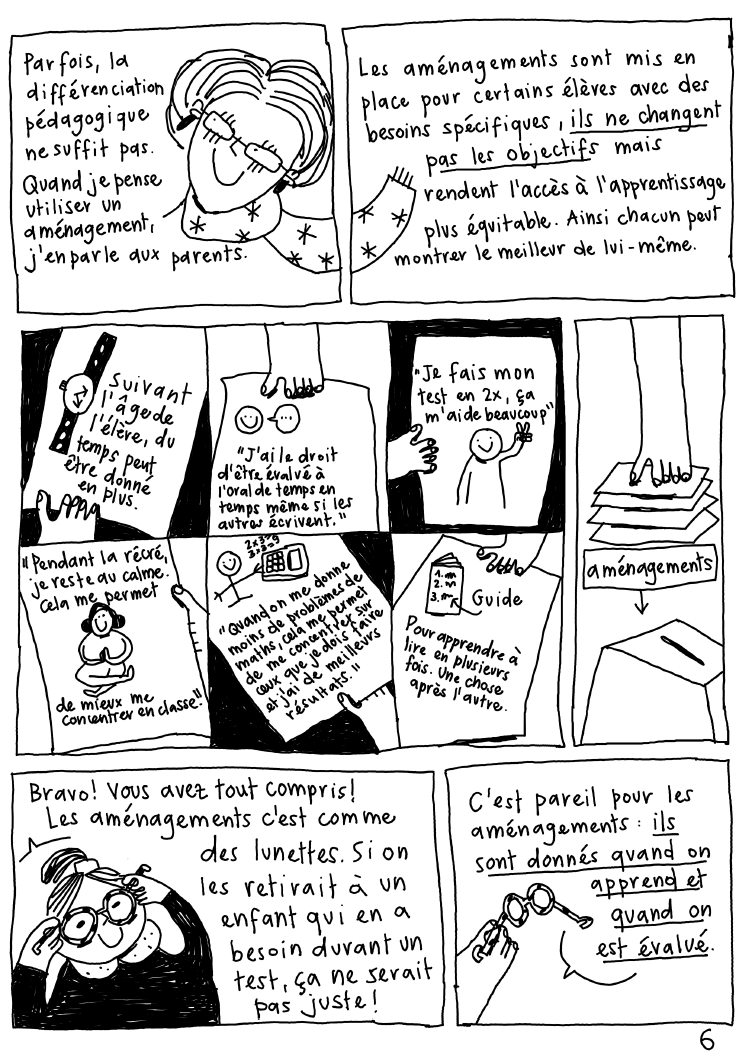 Parfois, la
différenciation
pédagogique
ne suffit pas.
Quand je pense
utiliser un
aménagement,
j'en parle aux parents.
Les aménagements sont mis en
place pour certains élèves avec des
besoins spécifiques, ils ne changent
pas les objectifs mais
rendent l'accès à l'apprentissage
plus équitable. Ainsi chacun peut
montrer le meilleur de lui-même.
Suivant
l'âge de
l'élève, du
temps peut
être donné
en plus.
"J'ai le droit
d'être évalué à
l'oral de temps en
temps même si les
autres écrivent."
"Je fais mon
test en 2x, ça
m'aide beaucoup"
aménagements
"Pendant la récré,
je reste au calme.
Cela me permet
de mieux me
concentrer en classe."
2x3=9
3x3=9
"Quand on me donne
moins de problèmes de
maths, cela me permet
de me concentrer sur
ceux que je dois faire
et j'ai de meilleurs
résultats."
1. m
2. m
3. m
Guide
Pour apprendre à
lire en plusieurs
fois. Une chose
après l'autre.
Bravo! Vous avez tout compris!
Les aménagements c'est comme
des lunettes. Si on
les retirait à un
enfant qui en a
besoin durant un
test, ça ne serait
pas juste!
C'est pareil pour les
aménagements: ils
sont donnés quand on
apprend et
quand on
est évalué.
6